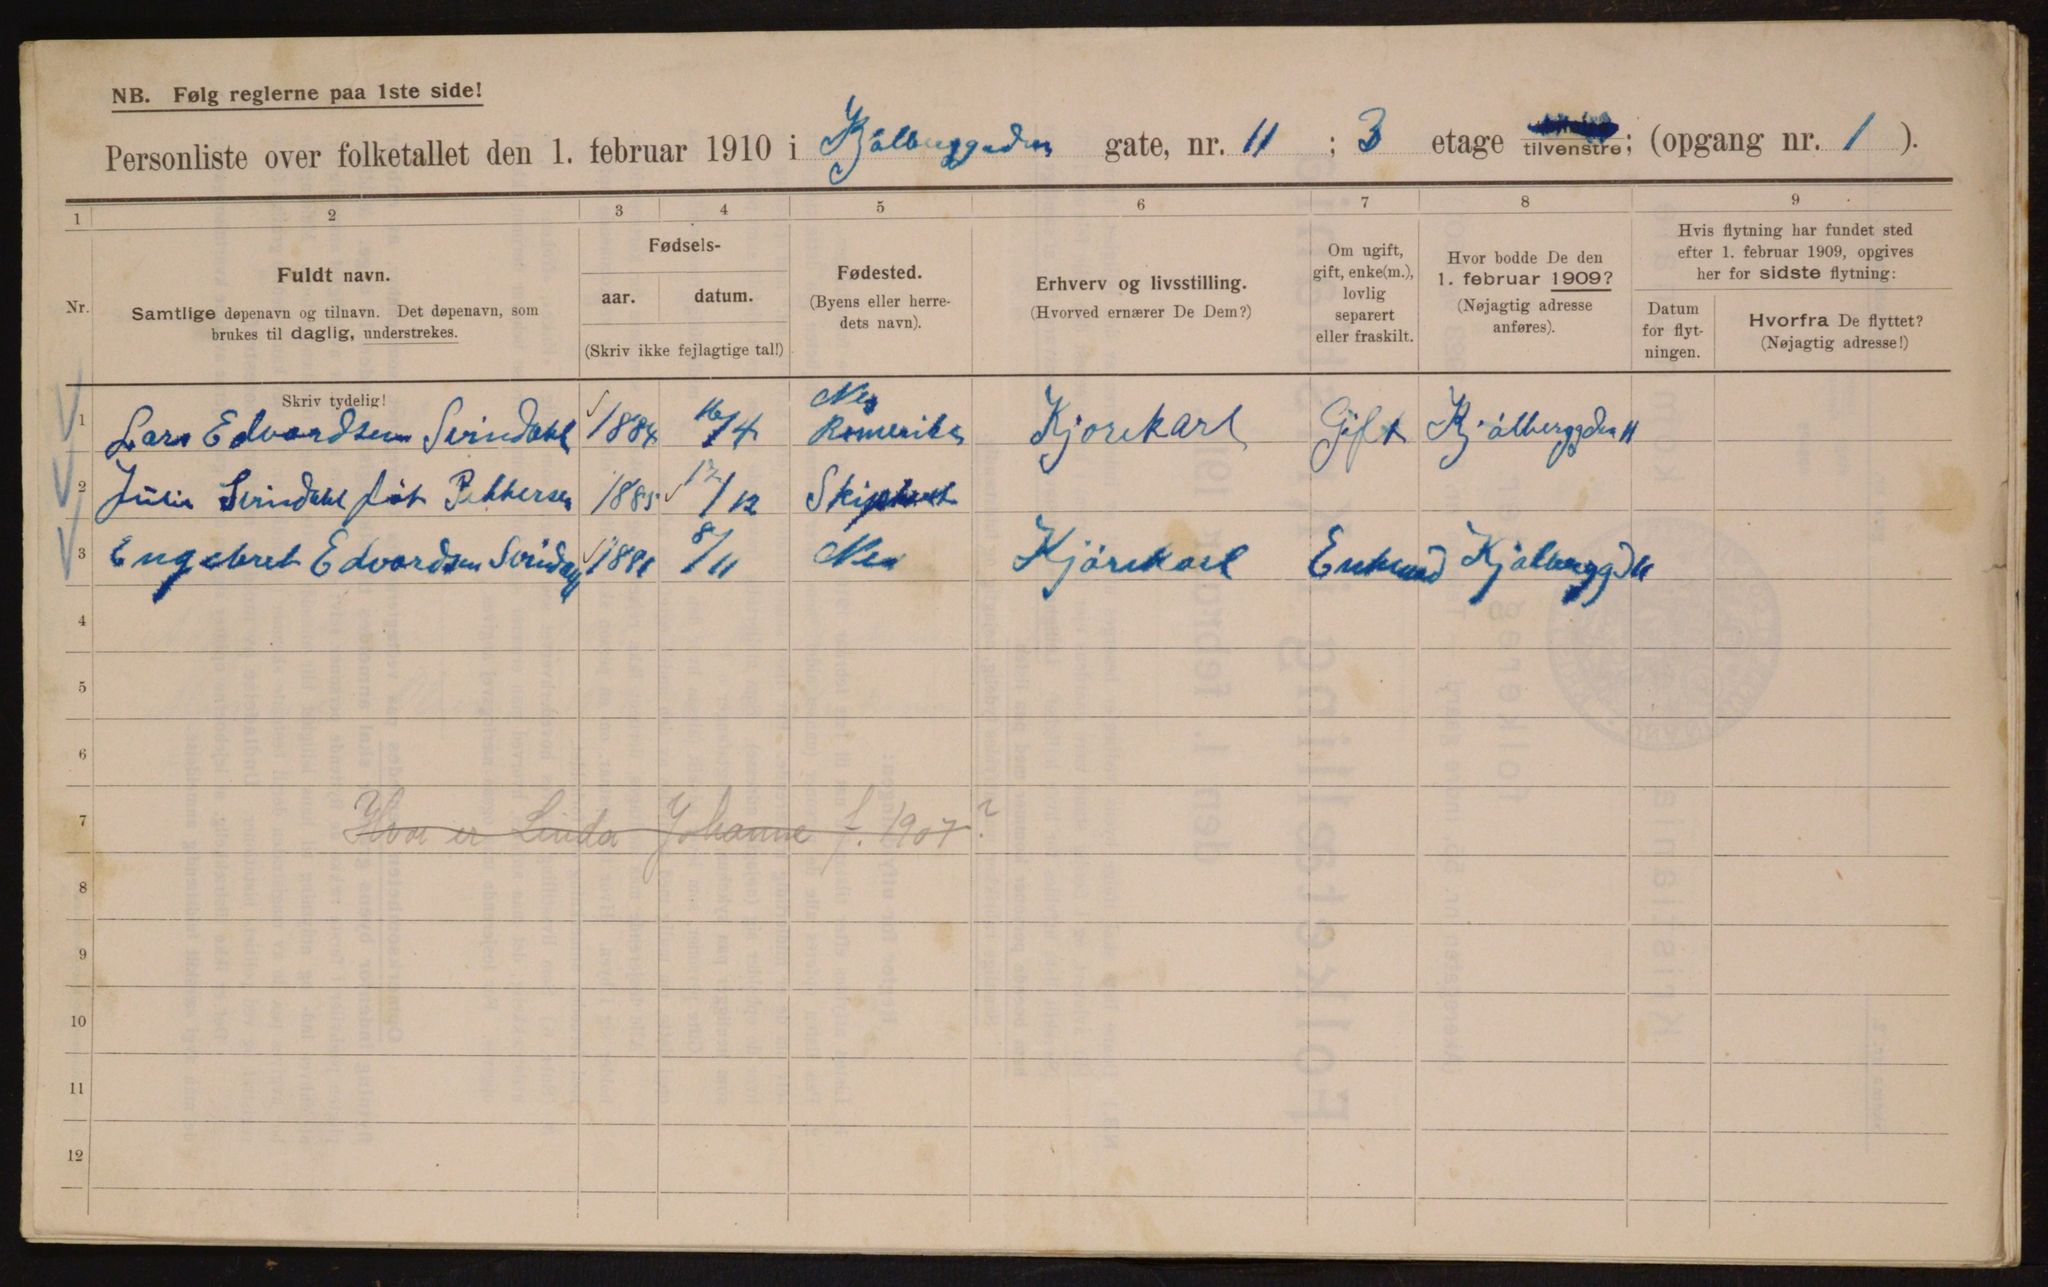 NB. Følg reglerne paa 1ste side!
Personliste over folketallet den 1. februar 1910 i Kjølberggaden gate, nr. 11 ; 3 etage tilvenstre; (opgang nr. 1 ).
1 2 3 4 5 6 7 8 9
Nr.
Fuldt navn.
Samtlige døpenavn og tilnavn. Det døpenavn, som
brukes til daglig, understrekes.
Fødsels-
aar. datum.
(Skriv ikke fejlagtige tal!)
Fødested.
(Byens eller herre-
dets navn).
Erhverv og livsstilling.
(Hvorved ernærer De Dem?)
Om ugift,
gift, enke(m.),
lovlig
separert
eller fraskilt.
Hvor bodde De den
1. februar 1909?
(Nøjagtig adresse
anføres).
Hvis flytning har fundet sted
efter 1. februar 1909, opgives
her for sidste flytning:
Datum
for flyt-
ningen.
Hvorfra De flyttet?
(Nøjagtig adresse!)
Skriv tydelig!
1 Lars Edvardsen Svindahl 1884 16/4 Nes Romerike Kjørekarl Gift Kjølberggden 11
2 Julie Svindahl føt Pettersen 1885 17/12
3 Engebret Edvardsen 8/11 Nes Kjørekarl Enkemand Kjølbergg 11
4
5
6
7 Hvor er Linda Johanne f. 1907?
8
9
10
11
12